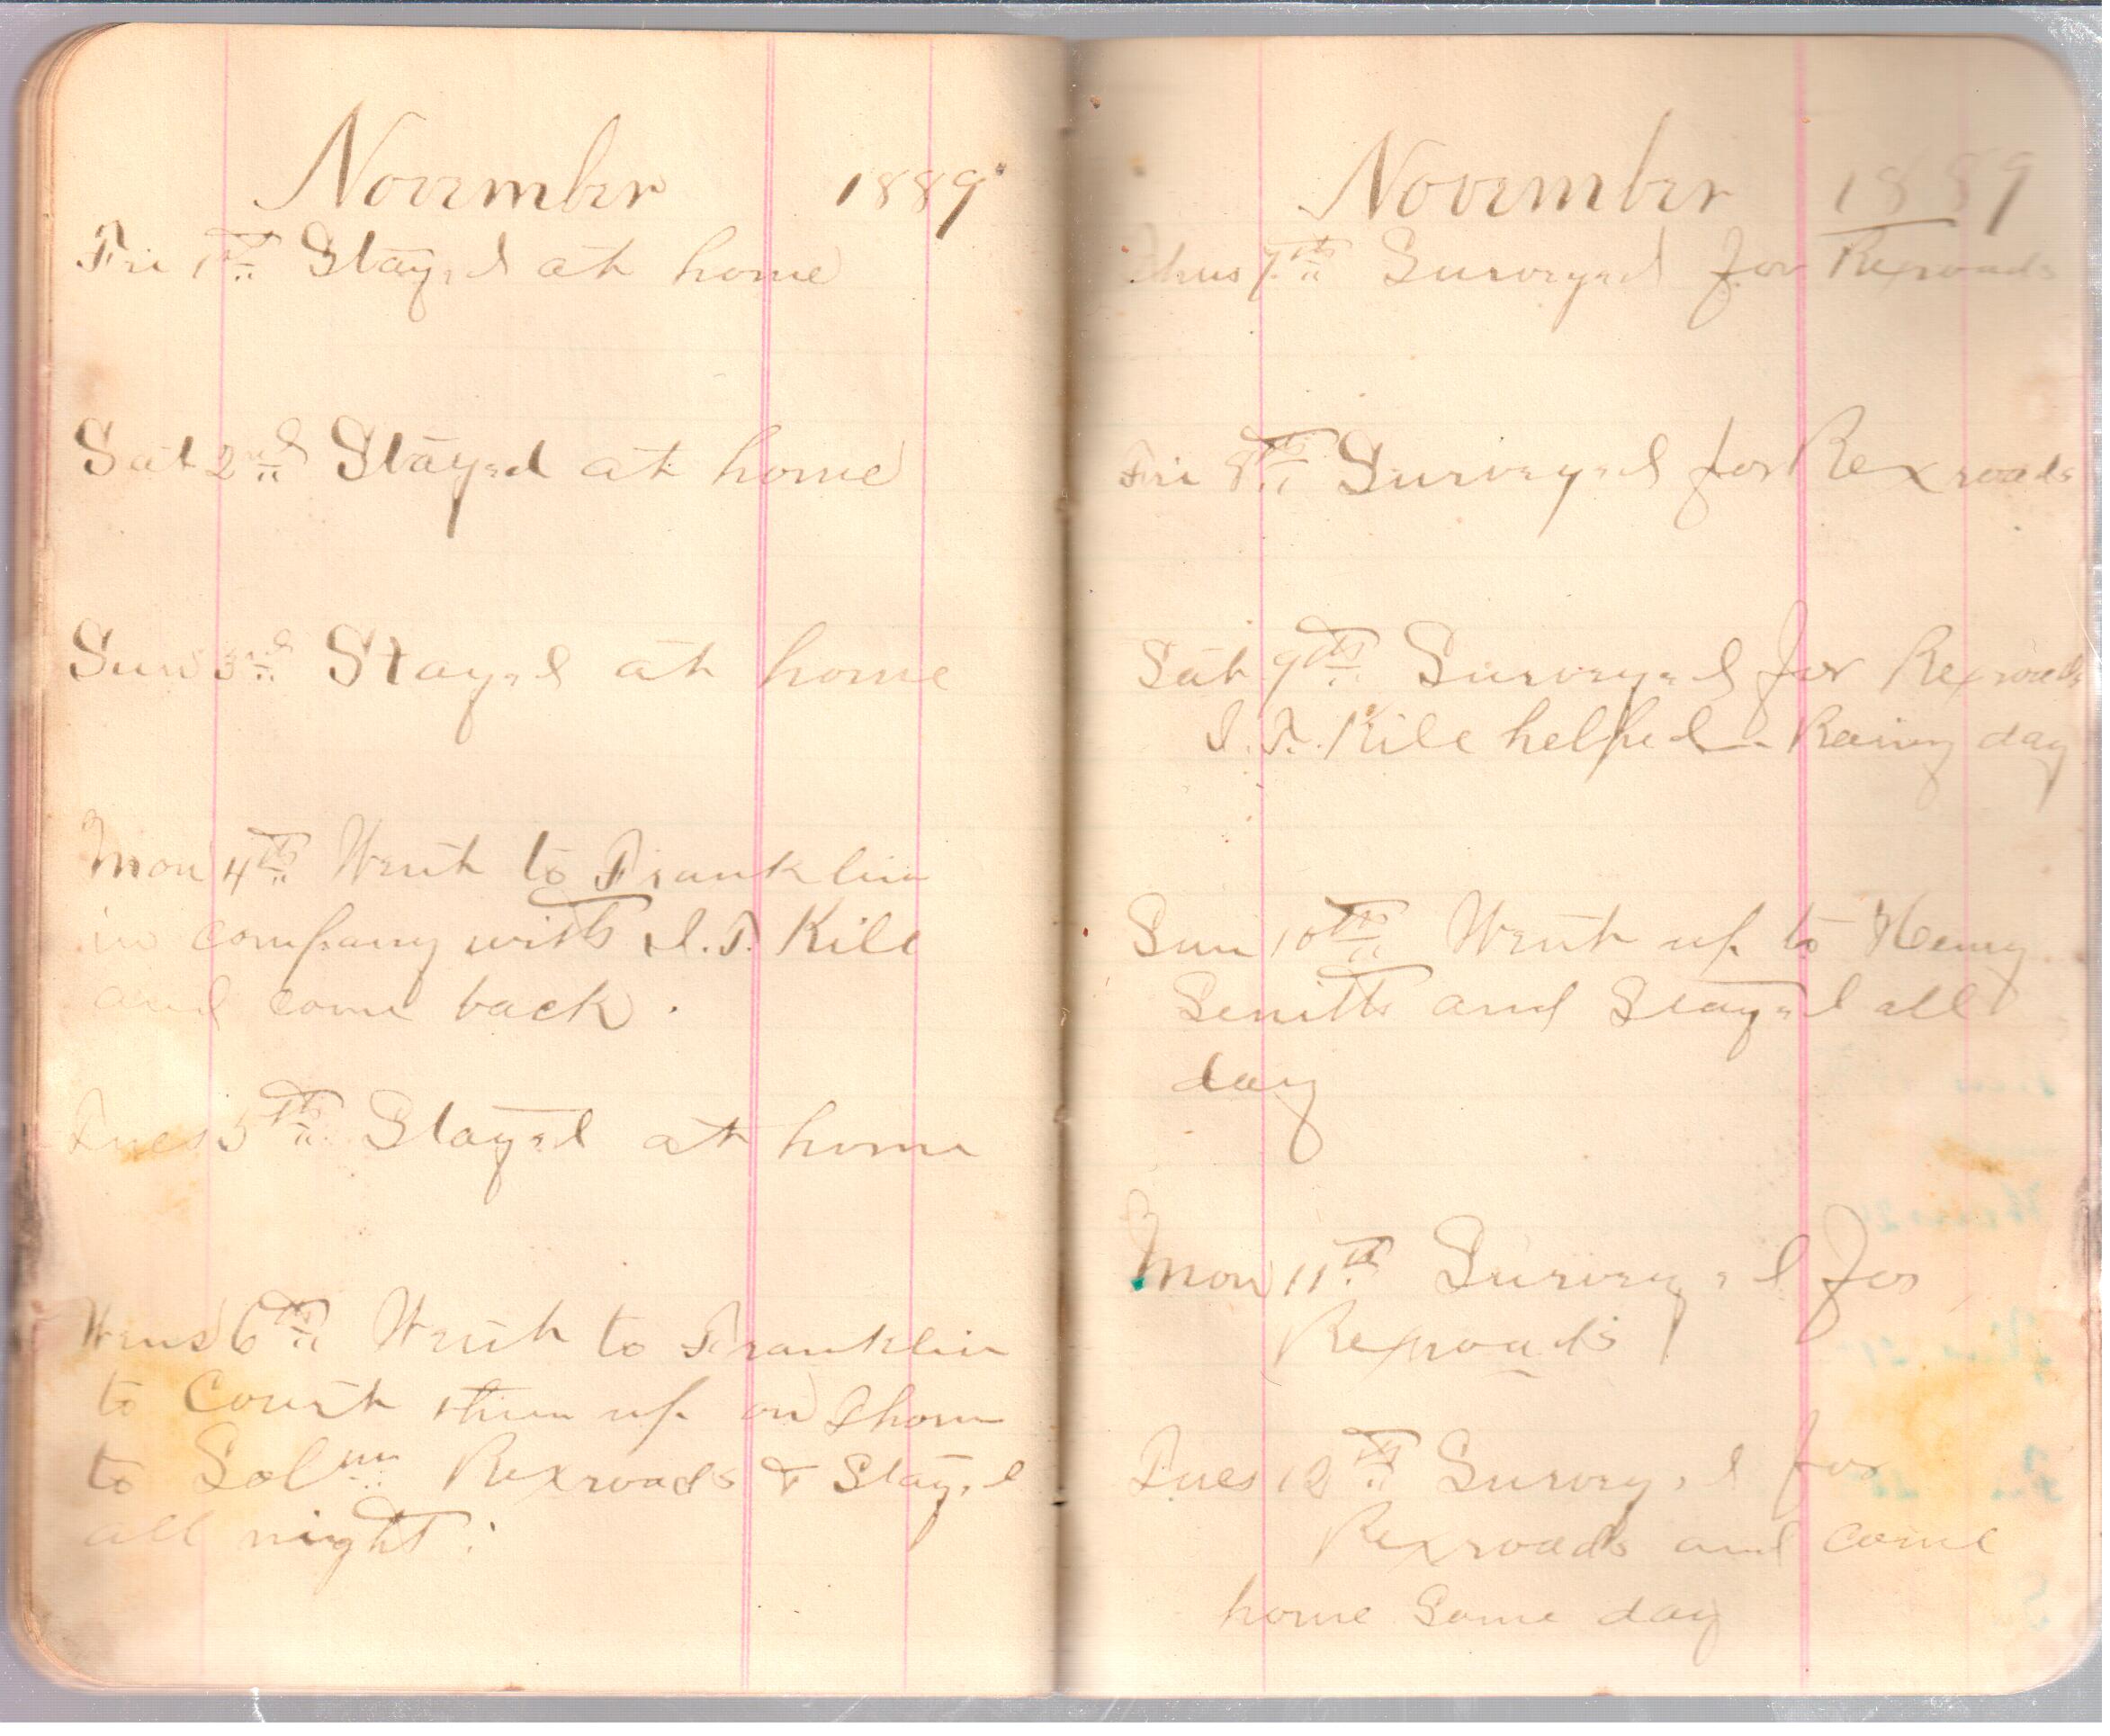 November 1889
Fri 1st Stayed at home
Sat 2nd Stayed at home
Sun 3rd Stayed at home
Mon 4th Went to Franklin
in company with I.T. Kile
and come back.
Tues 5th Stayed at home
Wens 6th Went to Franklin
to Court then up on Thorn
to Solmn Rexroads & Stayed
all night.
November 1889
Thus 7th Surveyed for Rexroads
Fri 8th Surveyed for Rexroads
Sat 9th Surveyed for Rexroads
I.T. Kile helped Rainy day
Sun 10th Went up to Henry
and Stayed all
day
Mon 11th Surveyed for
Rexroads
Tues 12th Surveyed for
Rexroads and come
home Same day